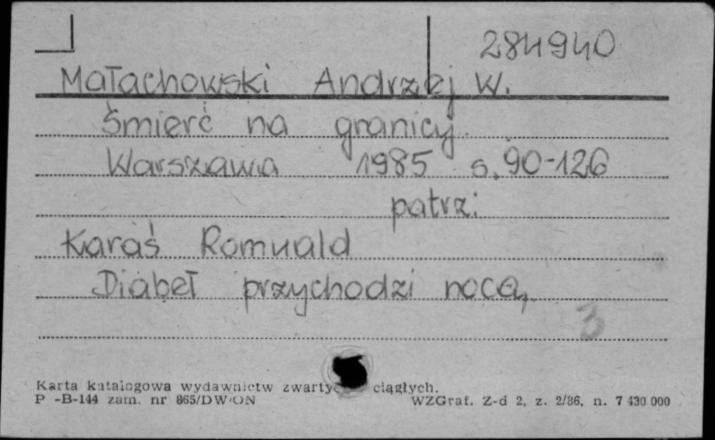 284940
Małachowski Andrzej W.
Śmierć na granicy.
Warszawa 1985 s. 90-126
patrz:
Karaś Romuald
Diabeł przychodzi nocą,
3
Karta katalogowa wydawnictw zwartych ciągłych.
P -B-144 zam. nr 865/DW/ON WZGraf. Z-d 2, z. 2/86, n. 7 430 000